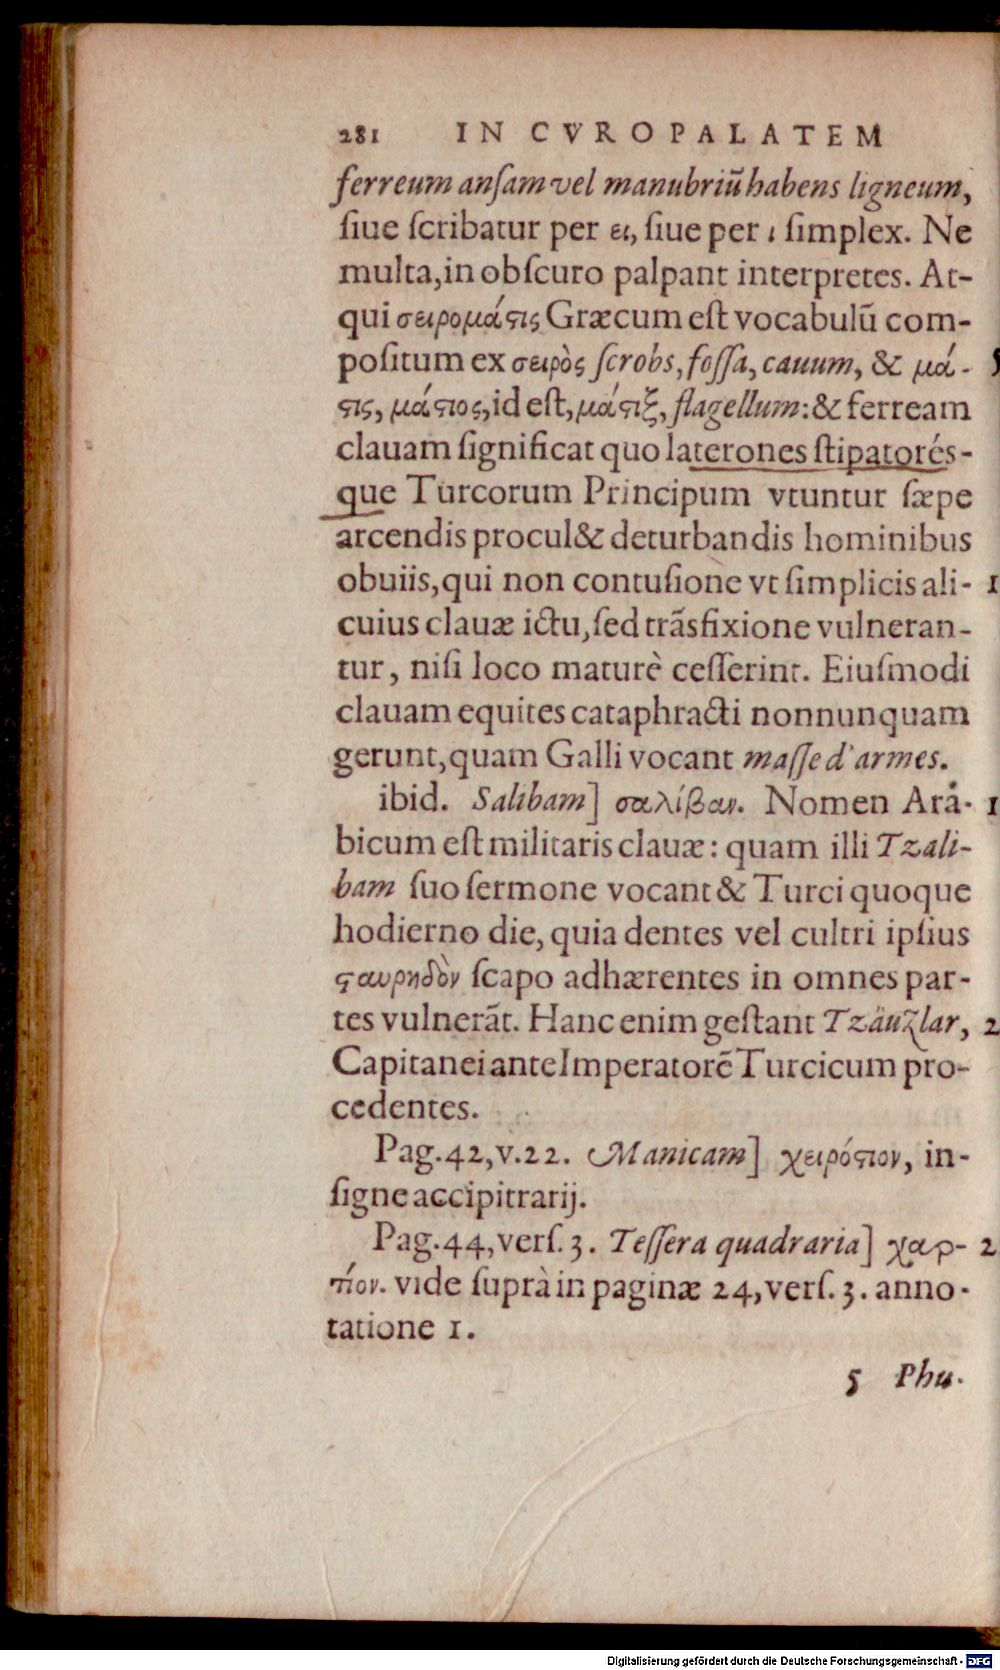 281 IN CVROPALATEM
ferreum anſam vel manubriū habens ligneum,
ſiue ſcribatur per ει, ſiue per ι ſimplex. Ne
multa, in obſcuro palpant interpretes. At-
qui σειρομάϛις Græcum eſt vocabulū com-
poſitum ex σειρὸς ſcrobs, foſſa, cauum, & μά- 5
ϛις, μάϛιος, id eſt, μάϛιξ, flagellum: & ferream
clauam ſignificat quo laterones ſtipatorés-
que Turcorum Principum vtuntur ſæpe
arcendis procul & deturbandis hominibus
obuiis, qui non contuſione vt ſimplicis ali- 1
cuius clauæ ictu, ſed trāsfixione vulneran-
tur, niſi loco maturè ceſſerint. Eiuſmodi
clauam equites cataphracti nonnunquam
gerunt, quam Galli vocant maſſe d'armes.
ibid. Salibam] σαλίβαν. Nomen Ara- 1
bicum eſt militaris clauæ: quam illi Tzali-
bam ſuo ſermone vocant & Turci quoque
hodierno die, quia dentes vel cultri ipſius
ϛαυρηδὸν ſcapo adhærentes in omnes par-
tes vulnerāt. Hanc enim geſtant Tzäuzlar, 2
Capitanei ante Imperatorē Turcicum pro-
cedentes.
Pag. 42, v. 22. Manicam] χειρόϛιον, in-
ſigne accipitrarij.
Pag. 44, verſ. 3. Teſſera quadraria] χαρ- 2
τίον. vide ſuprà in paginæ 24, verſ. 3. anno-
tatione 1.
5 Phu-
Digitalisierung gefördert durch die Deutsche Forschungsgemeinschaft - DFG